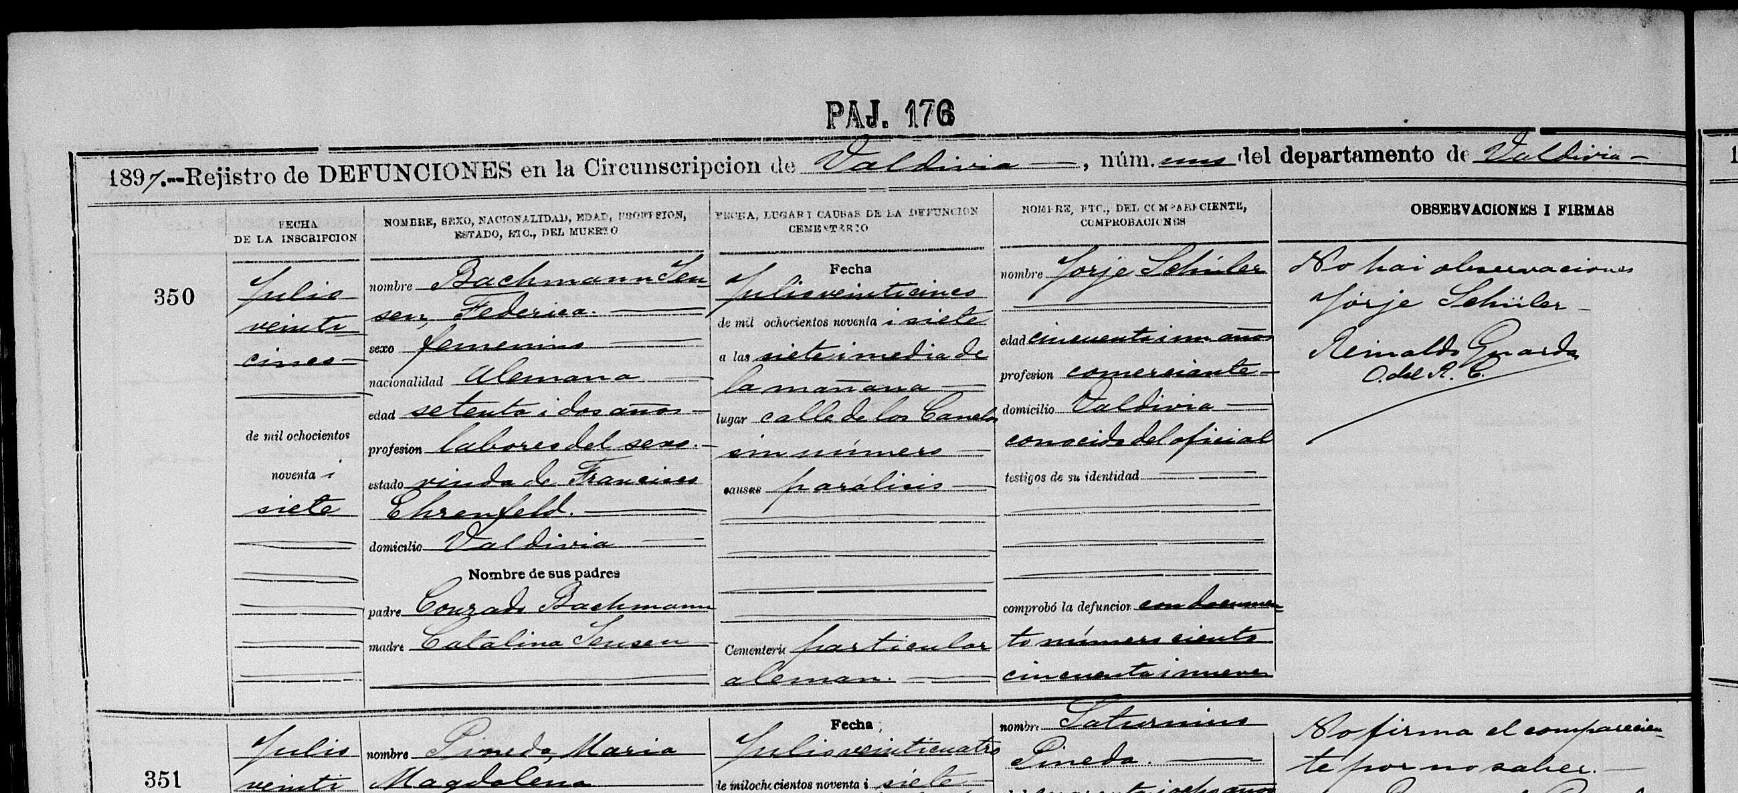 PAJ. 176
1897.--Rejistro de DEFUNCIONES en la Circunscripcion de Valdivia, núm. uno del departamento de Valdivia
FECHA
DE LA INSCRIPCION
NOMBRE, SEXO, NACIONALIDAD, EDAD, PROFESION,
ESTADO, ETC., DEL MUERTO
FECHA, LUGAR I CAUSAS DE LA DEFUNCION
CEMENTERIO
NOMBRE, ETC., DEL COMPARECIENTE,
COMPROBACIONES
OBSERVACIONES I FIRMAS
350
Julio
veinti
cinco
de mil ochocientos
noventa i
siete
nombre Bachmann Jen
sen, Federica.
sexo femenino
nacionalidad Alemana
edad setenta i dos años
profesion labores del sexo.
estado viuda de Francisco
Ehrenfeld.
domicilio Valdivia
Nombre de sus padres
padre Conrado Bachmann
madre Catalina Jensen
Fecha
Julio veinticinco
de mil ochocientos noventa i siete
a las siete i media de
la mañana
lugar calle de los Canelos
sin número
causas parálisis
Cementerio particular
aleman.
nombre Jorje Schüler
edad cincuenta i un años
profesion comerciante
domicilio Valdivia
conocido del oficial
testigos de su identidad
comprobó la defuncion con documen
to número ciento
cincuenta i nueve
No hai observaciones
Jorje Schüler
Reinaldo Guarda
O. del R. C.
351
Julio
veinti
nombre Pineda, Maria
Magdalena
Fecha
Julio veinticuatro
de mil ochocientos noventa i siete
nombre Saturnino
Pineda.
No firma el comparecien
te por no saber.
1